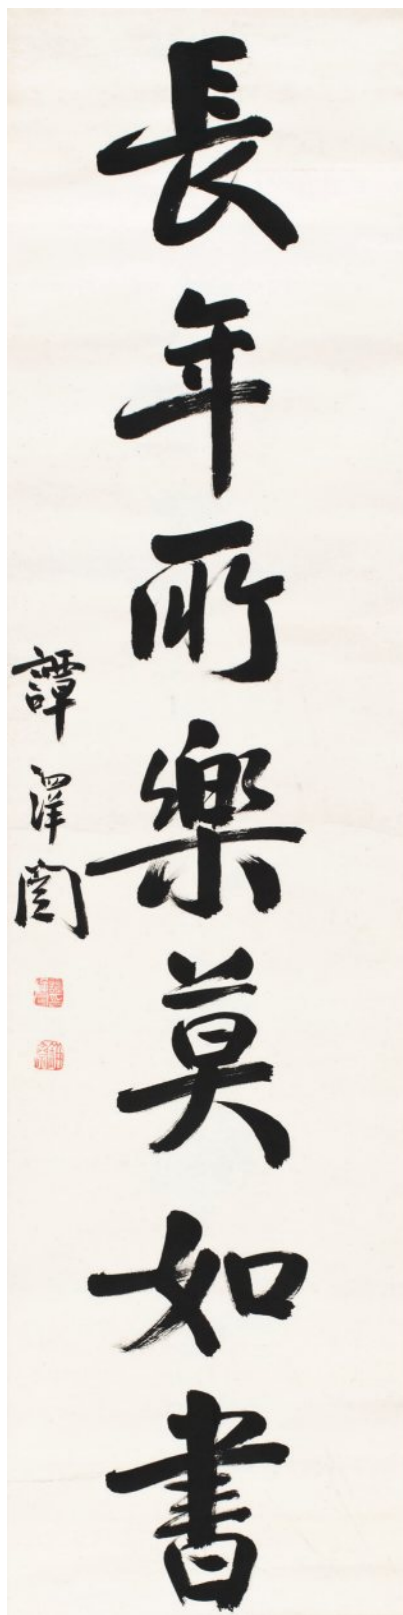 長年所樂莫如書
譚澤闓